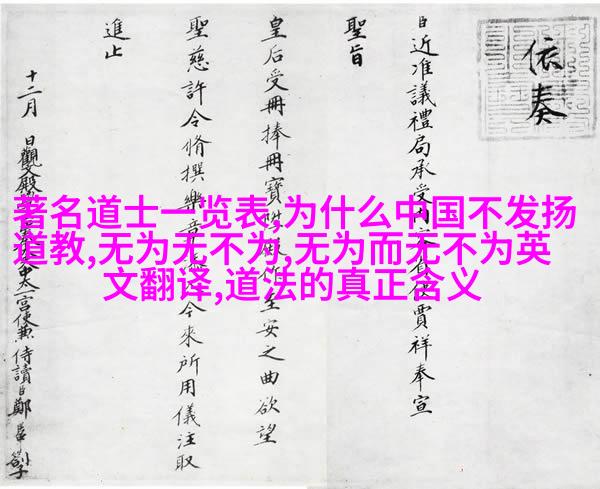 依奏
臣近准議禮局承受賈祥奉宣
聖旨
皇后受冊捧冊寶至安之曲欲望
聖慈許令脩撰樂今來所用儀注取
進止
十二月 日觀文殿太一宮使兼侍讀臣鄭
著名道士一览表,为什么中国不发扬
道教,无为无不为,无为而无不为英
文翻译,道法的真正含义